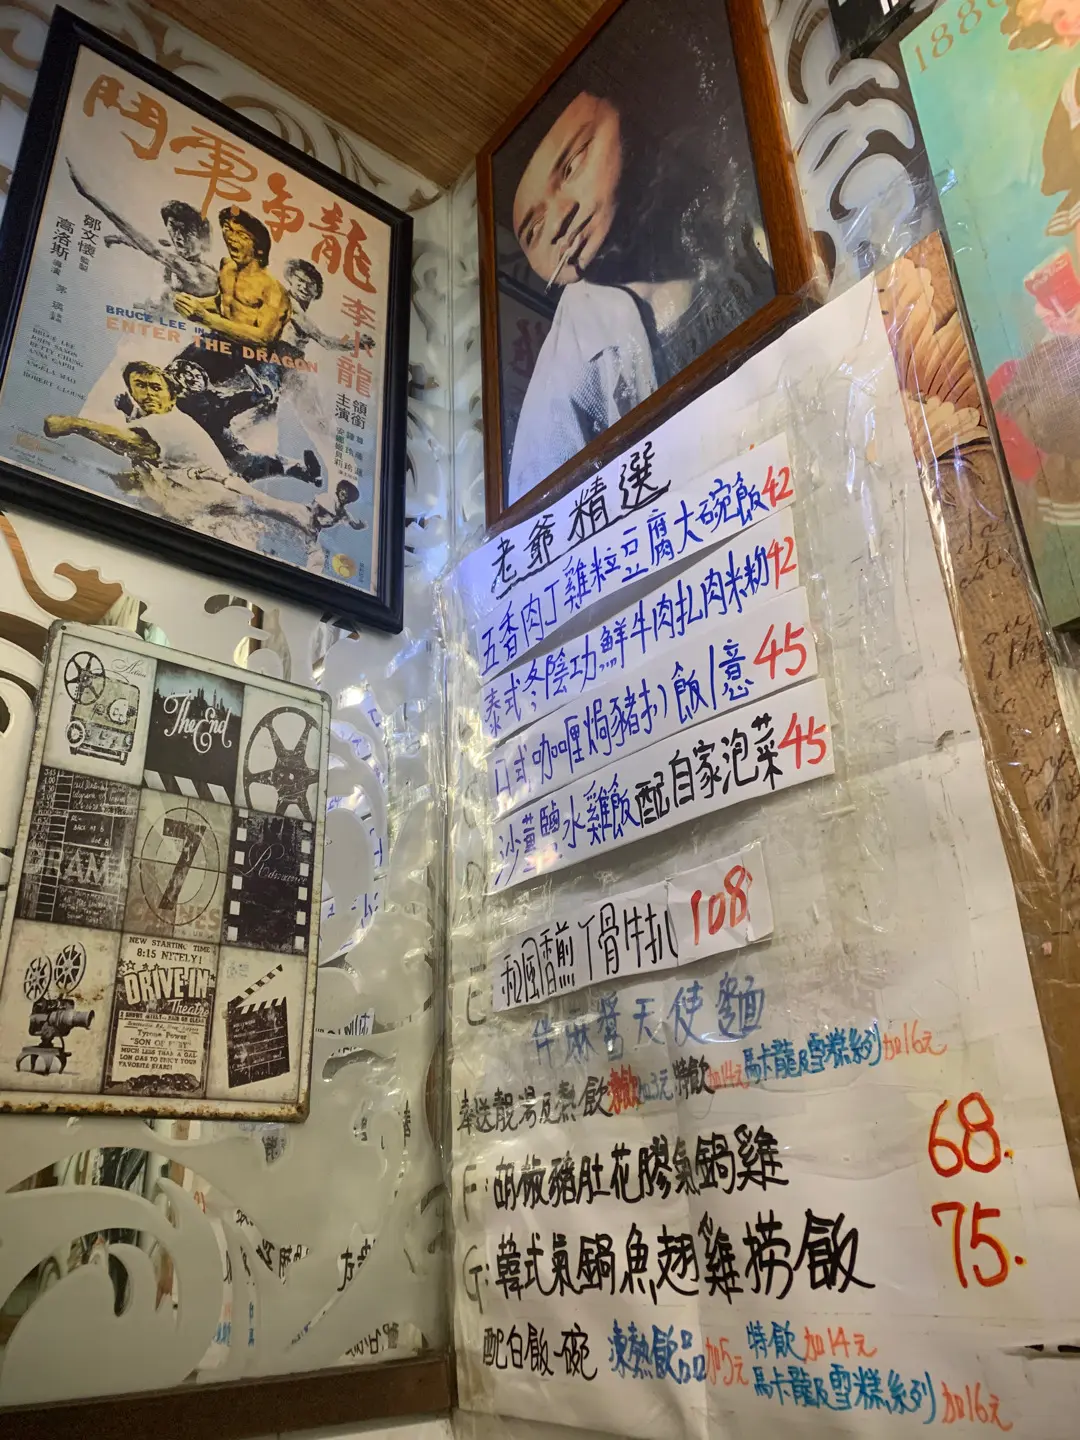 鬥爭龍
鄒文懷
高洛斯
李小龍
領銜
主演
BRUCE LEE IN
ENTER THE DRAGON
BRUCE LEE
JOHN SAXON
BETTY CHUNG
ANGELA MAO
ROBERT CLOUSE
188
The End
DRAMA
7
Romance
NEW STARTING TIME
8:15 NITELY!
DRIVE-IN
Theatre
Tyrone Power
"SON OF FURY"
MUCH LESS THAN A GAL-
LON GAS TO ENJOY YOUR
FAVORITE STARS!
老爺精選
五香肉丁雞粒豆腐大碗飯42
泰式冬陰功鮮牛肉扎肉米粉42
日式咖喱焗豬扒飯/意45
沙薑鹽水雞飯配自家泡菜45
E
和風香煎丁骨牛扒 108
麻醬天使麵
奉送靚湯及熱飲 凍飲加3元 特飲加14元 馬卡龍及雪糕系列加16元
F:胡椒豬肚花膠氣鍋雞 68.
G:韓式氣鍋魚翅雞撈飯 75.
配白飯一碗 凍熱飲品加5元 特飲加14元
馬卡龍及雪糕系列加16元